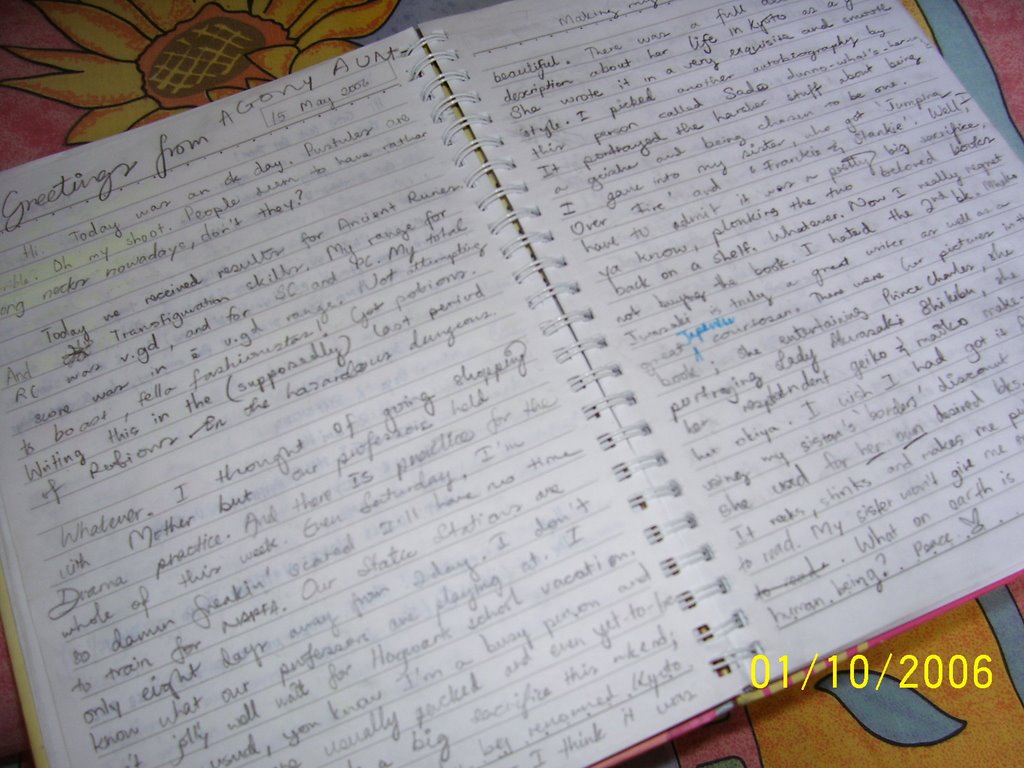 Greetings from AGONY AUNT
15 May 2006
Hi. Today was an ok day. Pustules are
rible. Oh my shoot. People seem to have rather
ong necks nowadays, don't they?
Today we received results for Ancient Runes
And Transfiguration skills. My range for
RC was v.gd, and for SC and PC. My total
score was in v.gd range. Not attempting
to boast, fella fashionistas! Got potions.
Writing this in the (supposedly) last period
of Potions in the hazardous dungeons.
Whatever. I thought of going shopping
with Mother but our professors held
Drama practice. And there IS practice for the
whole of this week. Even Saturday. I'm
so damn freakin' scared I'll have no time
to train for NAPFA. Our Static Stations are
only eight days away from 2day. I don't
know what our professors are playing at. I
't jolly well wait for Hogwarts school vacation.
usual, you know I'm a busy person and
usually packed and even yet-to-be
a big sacrifice this wkend;
Kyoto
I think it was
Making my
beautiful. There was a full
description about her life in Kyoto as a g
She wrote it in a very exquisite and smooth
style. I picked another autobiography by
this person called Sado dunno-what's-her-
It portrayed the harsher stuff about being
a geisha and being chosen to be one.
I gave into my sister, who got 'Jumping
Over Fire' and 'Frankie & Stankie'. Well-I
have to admit it was a pretty big sacrifice,
ya know, plonking the two beloved books
back on a shelf. Whatever. Now I really regret
not buying the book. I hated the 2nd bk. Mineko
Iwasaki is truly a great writer as well as a
great Japanese courtesan. There were pictures in the
book; she entertaining Prince Charles, she
portraying Lady Murasaki Shikibu, she
her resplendent geiko & maiko mates
her okiya. I wish I had got it
using my sister's borders' discount
she used for her own desired bks.
It reeks, stinks and makes me pu
to read. My sister won't give me
What on earth is
human being? Peace.
01/10/2006